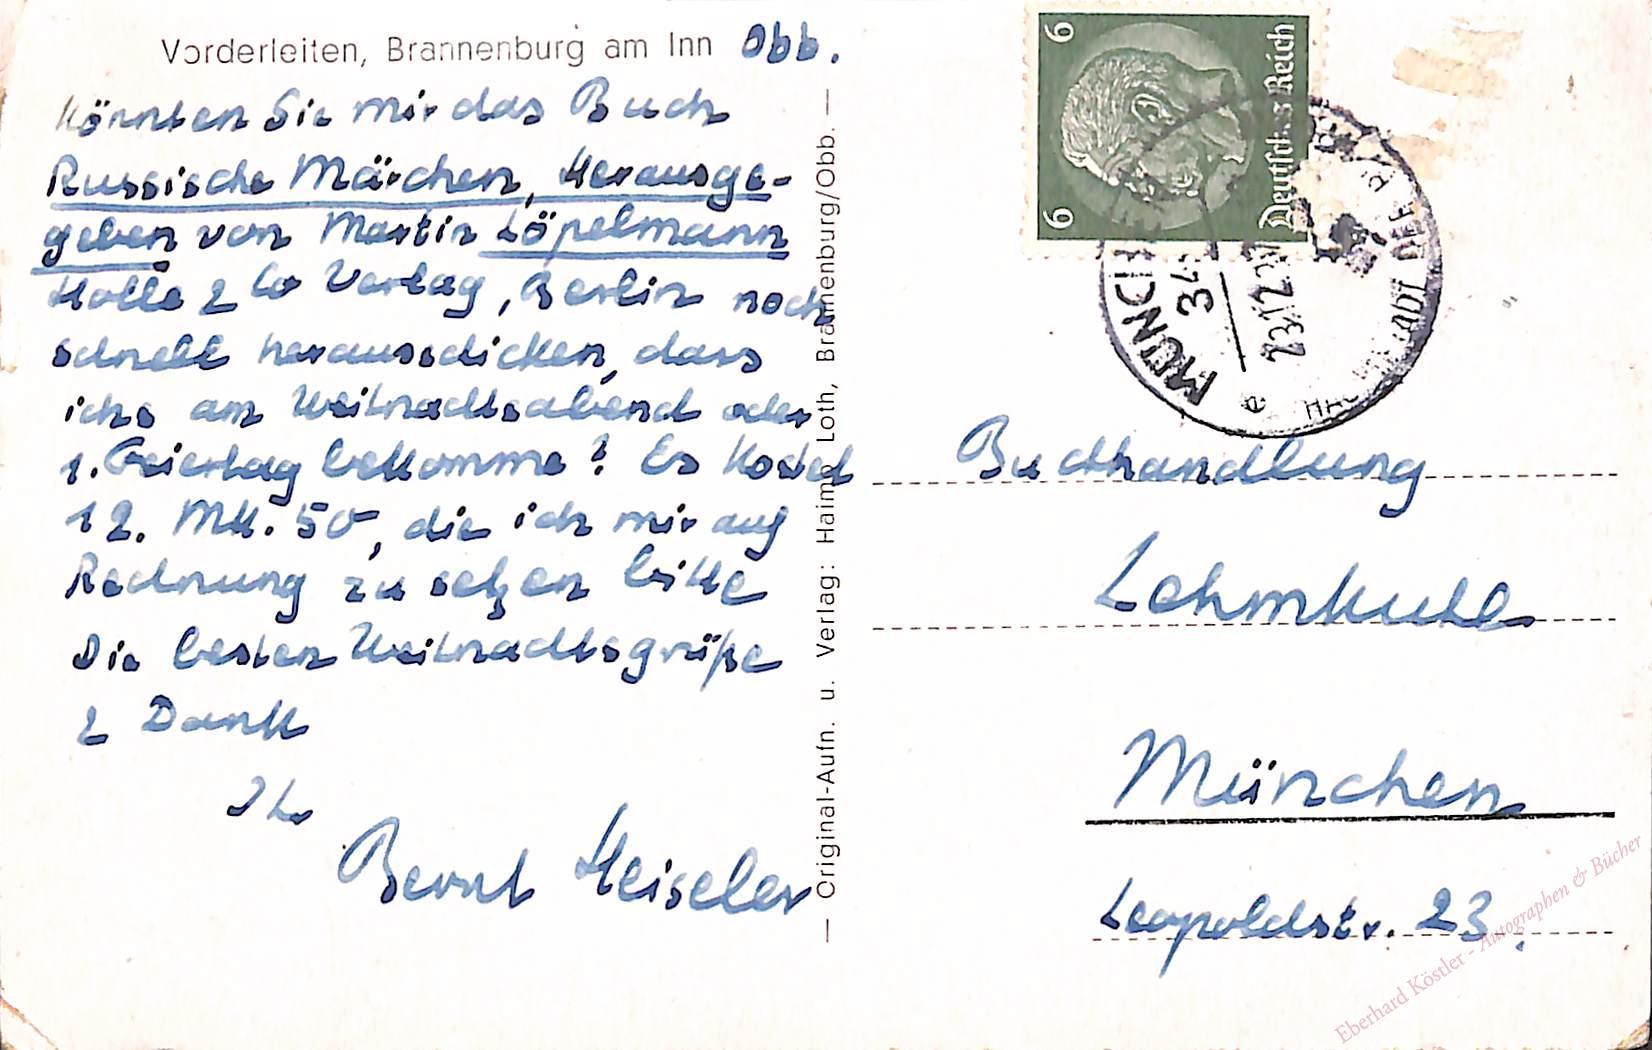 Vorderleiten, Brannenburg am Inn Obb.
Könnten Sie mir das Buch
Russische Märchen, Herausge-
geben von Martin Löpelmann
Holle & Co Verlag, Berlin noch
schnell herausschicken, dass
ichs am Weihnachtsabend oder
1. Feiertag bekomme? Es kostet
12. Mk. 50, die ich mir auf
Rechnung zu setzen bitte
Die besten Weihnachtsgrüße
& Dank
Ihr
Bernt Heiseler
— Original-Aufn. u. Verlag: Haimo Loth, Brannenburg/Obb. —
6
6
Deutsches Reich
MÜNCH
34
23.12.
HAU STADT DER
e
Buchhandlung
Lehmkuhl
München
Leopoldstr. 23.
Eberhard Köstler - Autographen & Bücher